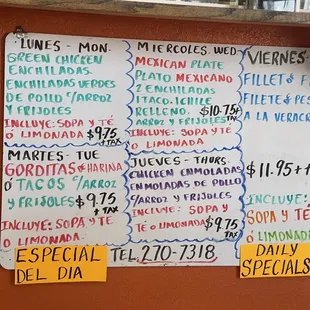 LUNES - MON.
GREEN CHICKEN
ENCHILADAS
ENCHILADAS VERDES
DE POLLO C/ARROZ
Y FRIJOLES
INCLUYE: SOPA Y TÉ
Ó LIMONADA $9.75
+ TAX
MARTES - TUE
GORDITAS HARINA
Ó TACOS C/ARROZ
Y FRIJOLES $9.75
+ TAX
INCLUYE: SOPA Y TÉ
Ó LIMONADA.
MIERCOLES. WED
MEXICAN PLATE
PLATO MEXICANO
2 ENCHILADAS
1 TACO. 1 CHILE
RELLENO. $10.75
ARROZ Y FRIJOLES + TAX
INCLUYE: SOPA Y TÉ
Ó LIMONADA
JUEVES - THURS.
CHICKEN ENMOLADAS
ENMOLADAS DE POLLO
C/ARROZ Y FRIJOLES
INCLUYE: SOPA Y
TÉ Ó LIMONADA $9.75
TAX
VIERNES -
FILLET
FILETE
A LA VERACR
$11.95 +
INCLUYE:
SOPA Y TÉ
Ó LIMONAD
ESPECIAL
DEL DIA
TEL. 270-7318
DAILY
SPECIALS